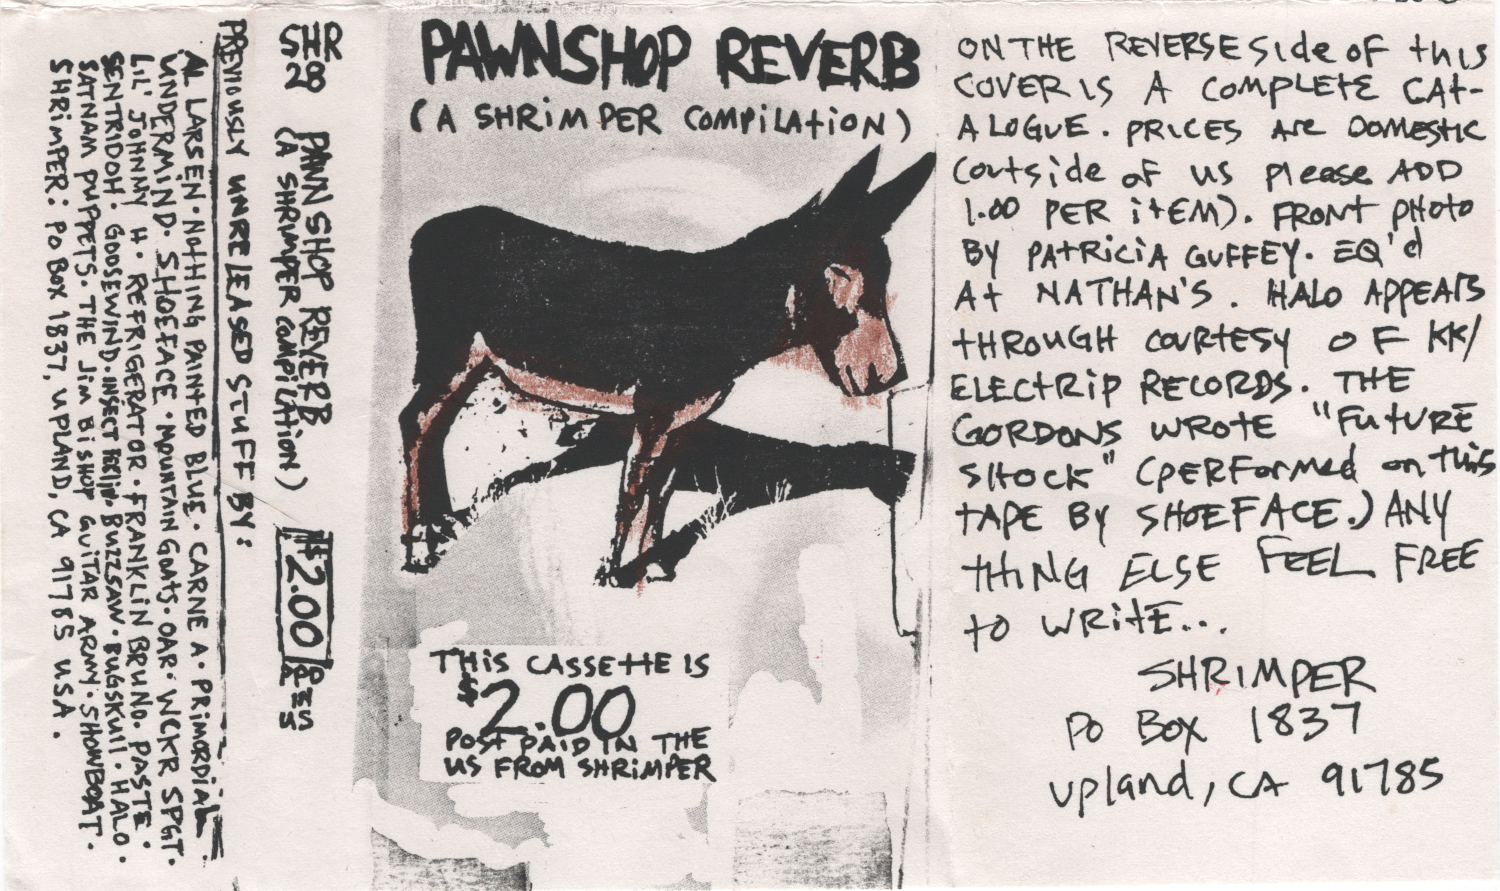 PREVIOUSLY UNRELEASED STUFF BY:
AL LARSEN · NOTHING PAINTED BLUE · CARNE A · PRIMORDIAL
UNDERMIND · SHOEFACE · MOUNTAIN GOATS · OAR · WCKR SPGT ·
LIL' JOHNNY H · REFRIGERATOR · FRANKLIN BRUNO. PASTE ·
SENTRIDOH · GOOSEWIND. INSECT · BUZZSAW · BUGSKULL · HALO ·
SATNAM PUPPETS. THE JIM BISHOP GUITAR ARMY · SHOWBOAT ·
SHRIMPER: PO BOX 1837, UPLAND, CA 91785 USA.
SHR
28
PAWNSHOP REVERB
(A SHRIMPER COMPILATION)
$2.00
PPD
IN
US
PAWNSHOP REVERB
(A SHRIMPER COMPILATION)
THIS CASSETTE IS
$2.00
POST PAID IN THE
US FROM SHRIMPER
ON THE REVERSE SIDE OF this
COVER IS A COMPLETE CAT-
ALOGUE. PRICES ARE DOMESTIC
(outside of US please ADD
1.00 PER itEM). FRONT PHOTO
BY PATRICIA GUFFEY. EQ'd
At NATHAN'S. HALO APPEARS
THROUGH COURTESY OF KK/
ELECTRIP RECORDS. THE
GORDONS WROTE "FUTURE
SHOCK" (PERFORMED on this
TAPE BY SHOEFACE.) ANY
THING ELSE FEEL FREE
to WRITE...
SHRIMPER
PO BOX 1837
Upland, CA 91785